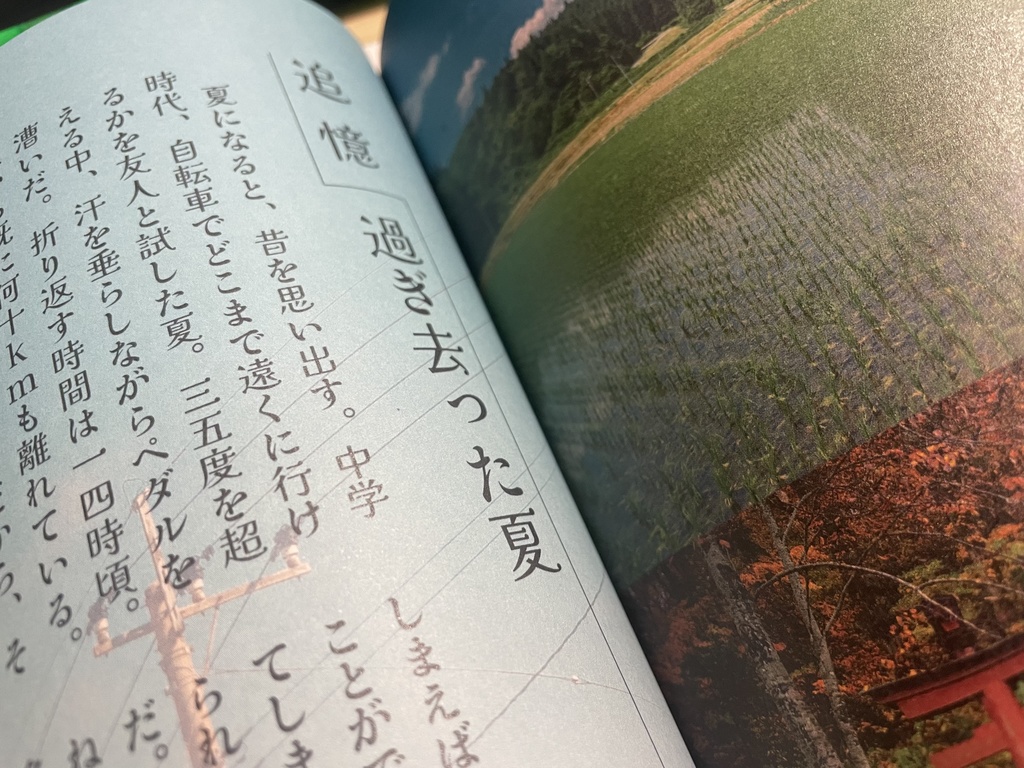 追憶
過ぎ去った夏
夏になると、昔を思い出す。中学
時代、自転車でどこまで遠くに行け
るかを友人と試した夏。三五度を超
える中、汗を垂らしながらペダルを
漕いだ。折り返す時間は一四時頃。
既に何十kmも離れている。
から、そ
しまえば
ことがで
てしま
られ
だ。
ね